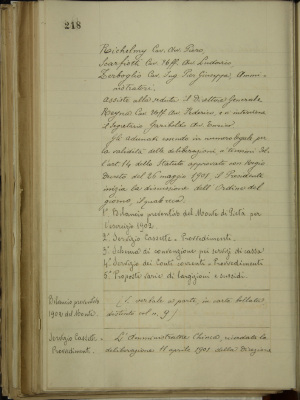 248
Reichelmy Cav. Avv. Piero,
Scarfiotti Cav. Uff. Avv. Ludovico,
Zerboglio Cav. Ing. Pier Giuseppe, Ammi-
nistratori.
Assiste alla seduta il Direttore Generale
Cav. Uff. Avv. Federico, e v'interviene
il Segretario Garibaldi Avv.
Gli adunati essendo in numero legale per
la validità delle deliberazioni, a termini del-
l'art 14 dello Statuto approvato con Regio
Decreto del 26 maggio 1901, il Presidente
inizia la discussione dell'Ordine del
giorno, il quale reca:
1° Bilancio preventivo del Monte di Pietà per
l'esercizio 1902.
2° Servizio Cassette - Provvedimenti.
3° Schema di convenzione pei servizi di cassa
4° Servizio dei Conti correnti - Provvedimenti
5° Proposte varie di elargizioni e sussidi.
Bilancio preventivo
1902 del Monte.
(Il verbale è a parte, in carta bollata
distinto col n. 9)
Servizio Cassette -
Provvediment.
L'Amministrazione Chiesa, ricordata la
deliberazione 11 aprile 1901 della Direzione